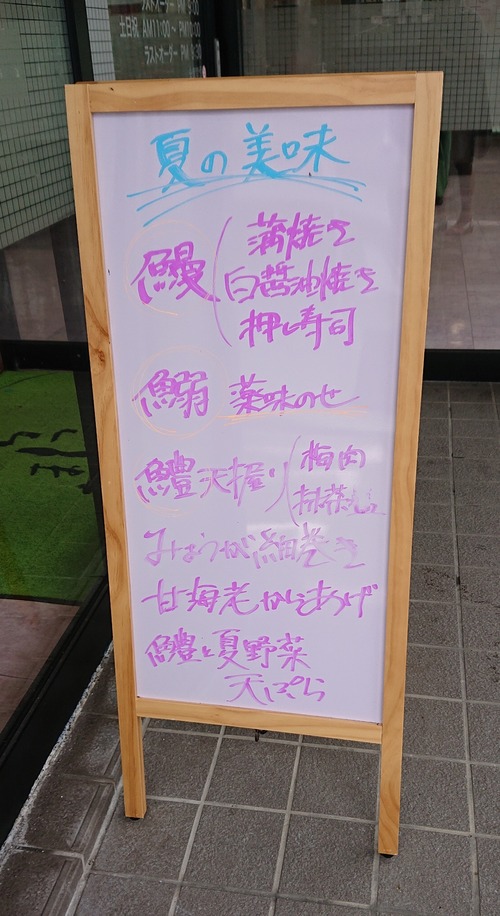 ラストオーダー
土日祝 AM11:00~PM10:00
ラストオーダー
夏の美味
鰻
蒲焼き
白醤油焼き
押し寿司
鰯 薬味のせ
鱧天握り
梅肉
抹茶塩
みょうが細巻き
甘海老からあげ
鱧と夏野菜
天ぷら